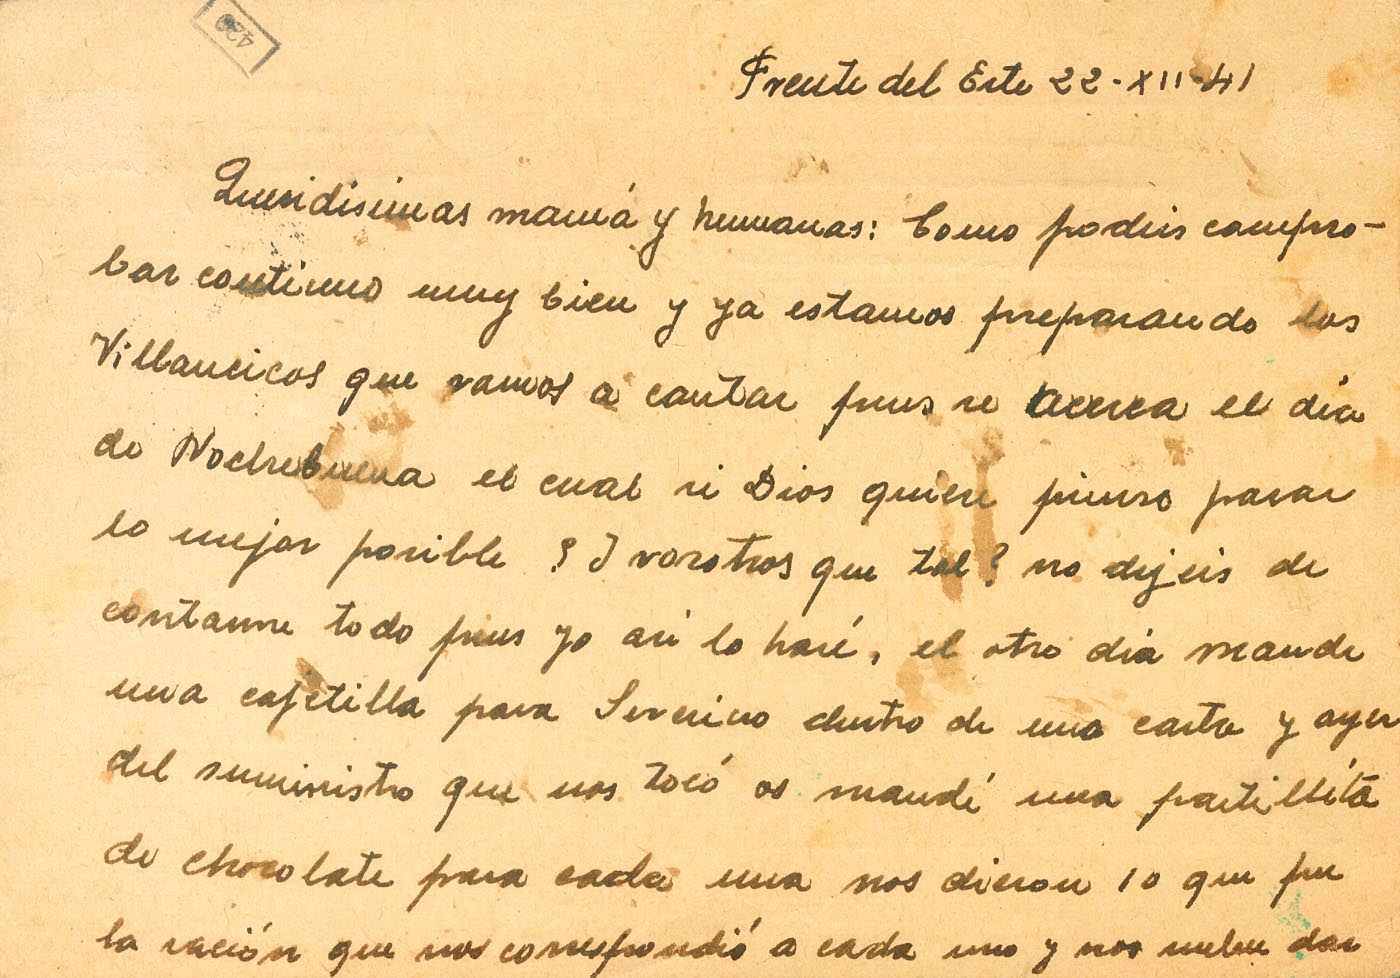 420
Frente del Este 22-XII-41
Queridisimas mamá y hermanas: Como podeis compro-
bar continuo muy bien y ya estamos preparando los
Villancicos que vamos a cantar pues se acerca el dia
de Nochebuena el cual si Dios quiere pienso pasar
lo mejor posible ? I vosotros que tal? no dejeis de
contarme todo pues yo asi lo haré, el otro dia mande
una cajetilla para Severino dentro de una carta y ayer
del suministro que nos tocó os mandé una partillita
de chocolate para cada una nos dieron 10 que fue
la ración que nos correspondió a cada uno y nos suelen dar